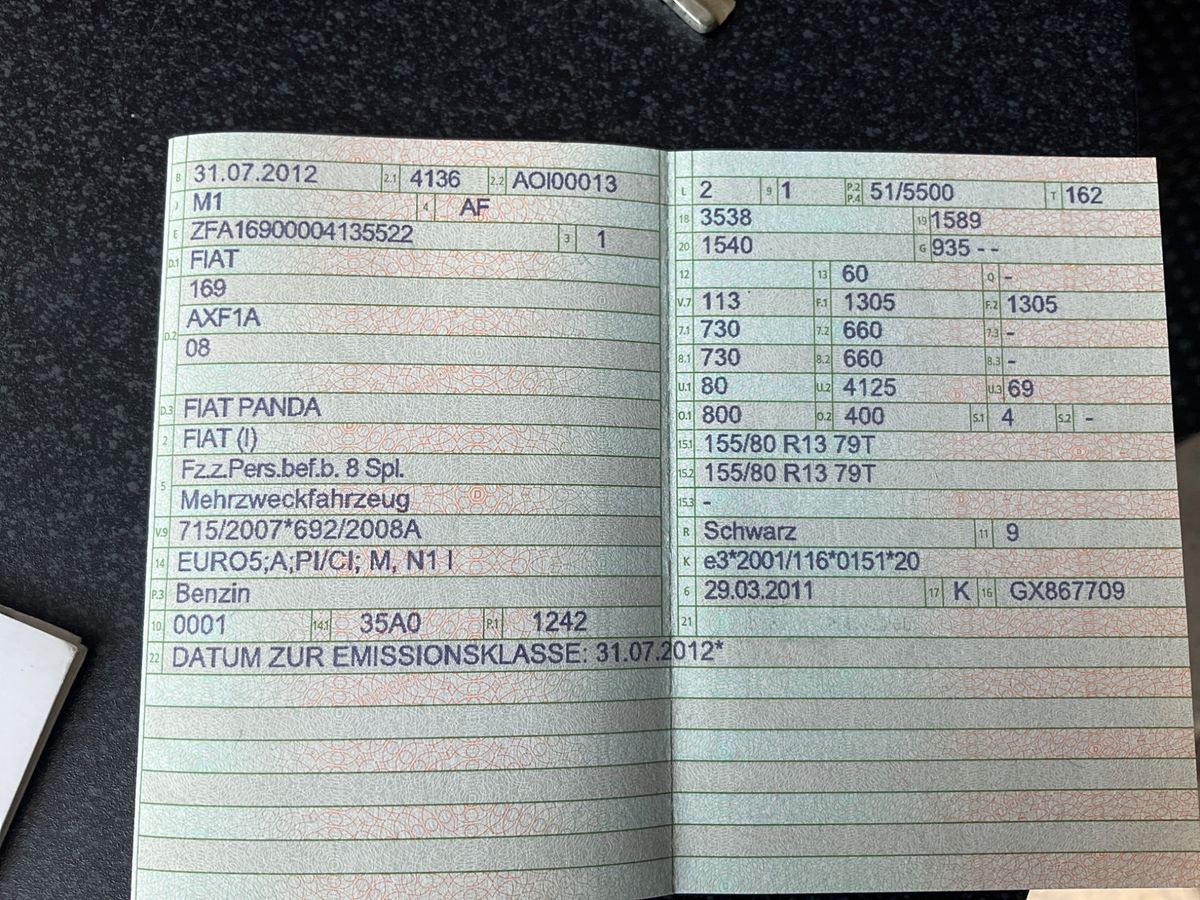 B 31.07.2012 2.1 4136 2.2 AOI00013
J M1 4 AF
E ZFA16900004135522 3 1
D.1 FIAT
169
D.2 AXF1A
08
D.3 FIAT PANDA
2 FIAT (I)
5 Fz.z.Pers.bef.b. 8 Spl.
Mehrzweckfahrzeug
V.9 715/2007*692/2008A
14 EURO5;A;PI/CI; M, N1 I
P.3 Benzin
10 0001 14.1 35A0 P.1 1242
22 DATUM ZUR EMISSIONSKLASSE: 31.07.2012*
L 2 9 1 P.2 P.4 51/5500 T 162
18 3538 19 1589
20 1540 G 935 - -
12 13 60 Q -
V.7 113 F.1 1305 F.2 1305
7.1 730 7.2 660 7.3 -
8.1 730 8.2 660 8.3 -
U.1 80 U.2 4125 U.3 69
O.1 800 O.2 400 S.1 4 S.2 -
15.1 155/80 R13 79T
15.2 155/80 R13 79T
15.3 -
R Schwarz 11 9
K e3*2001/116*0151*20
6 29.03.2011 17 K 16 GX867709
21